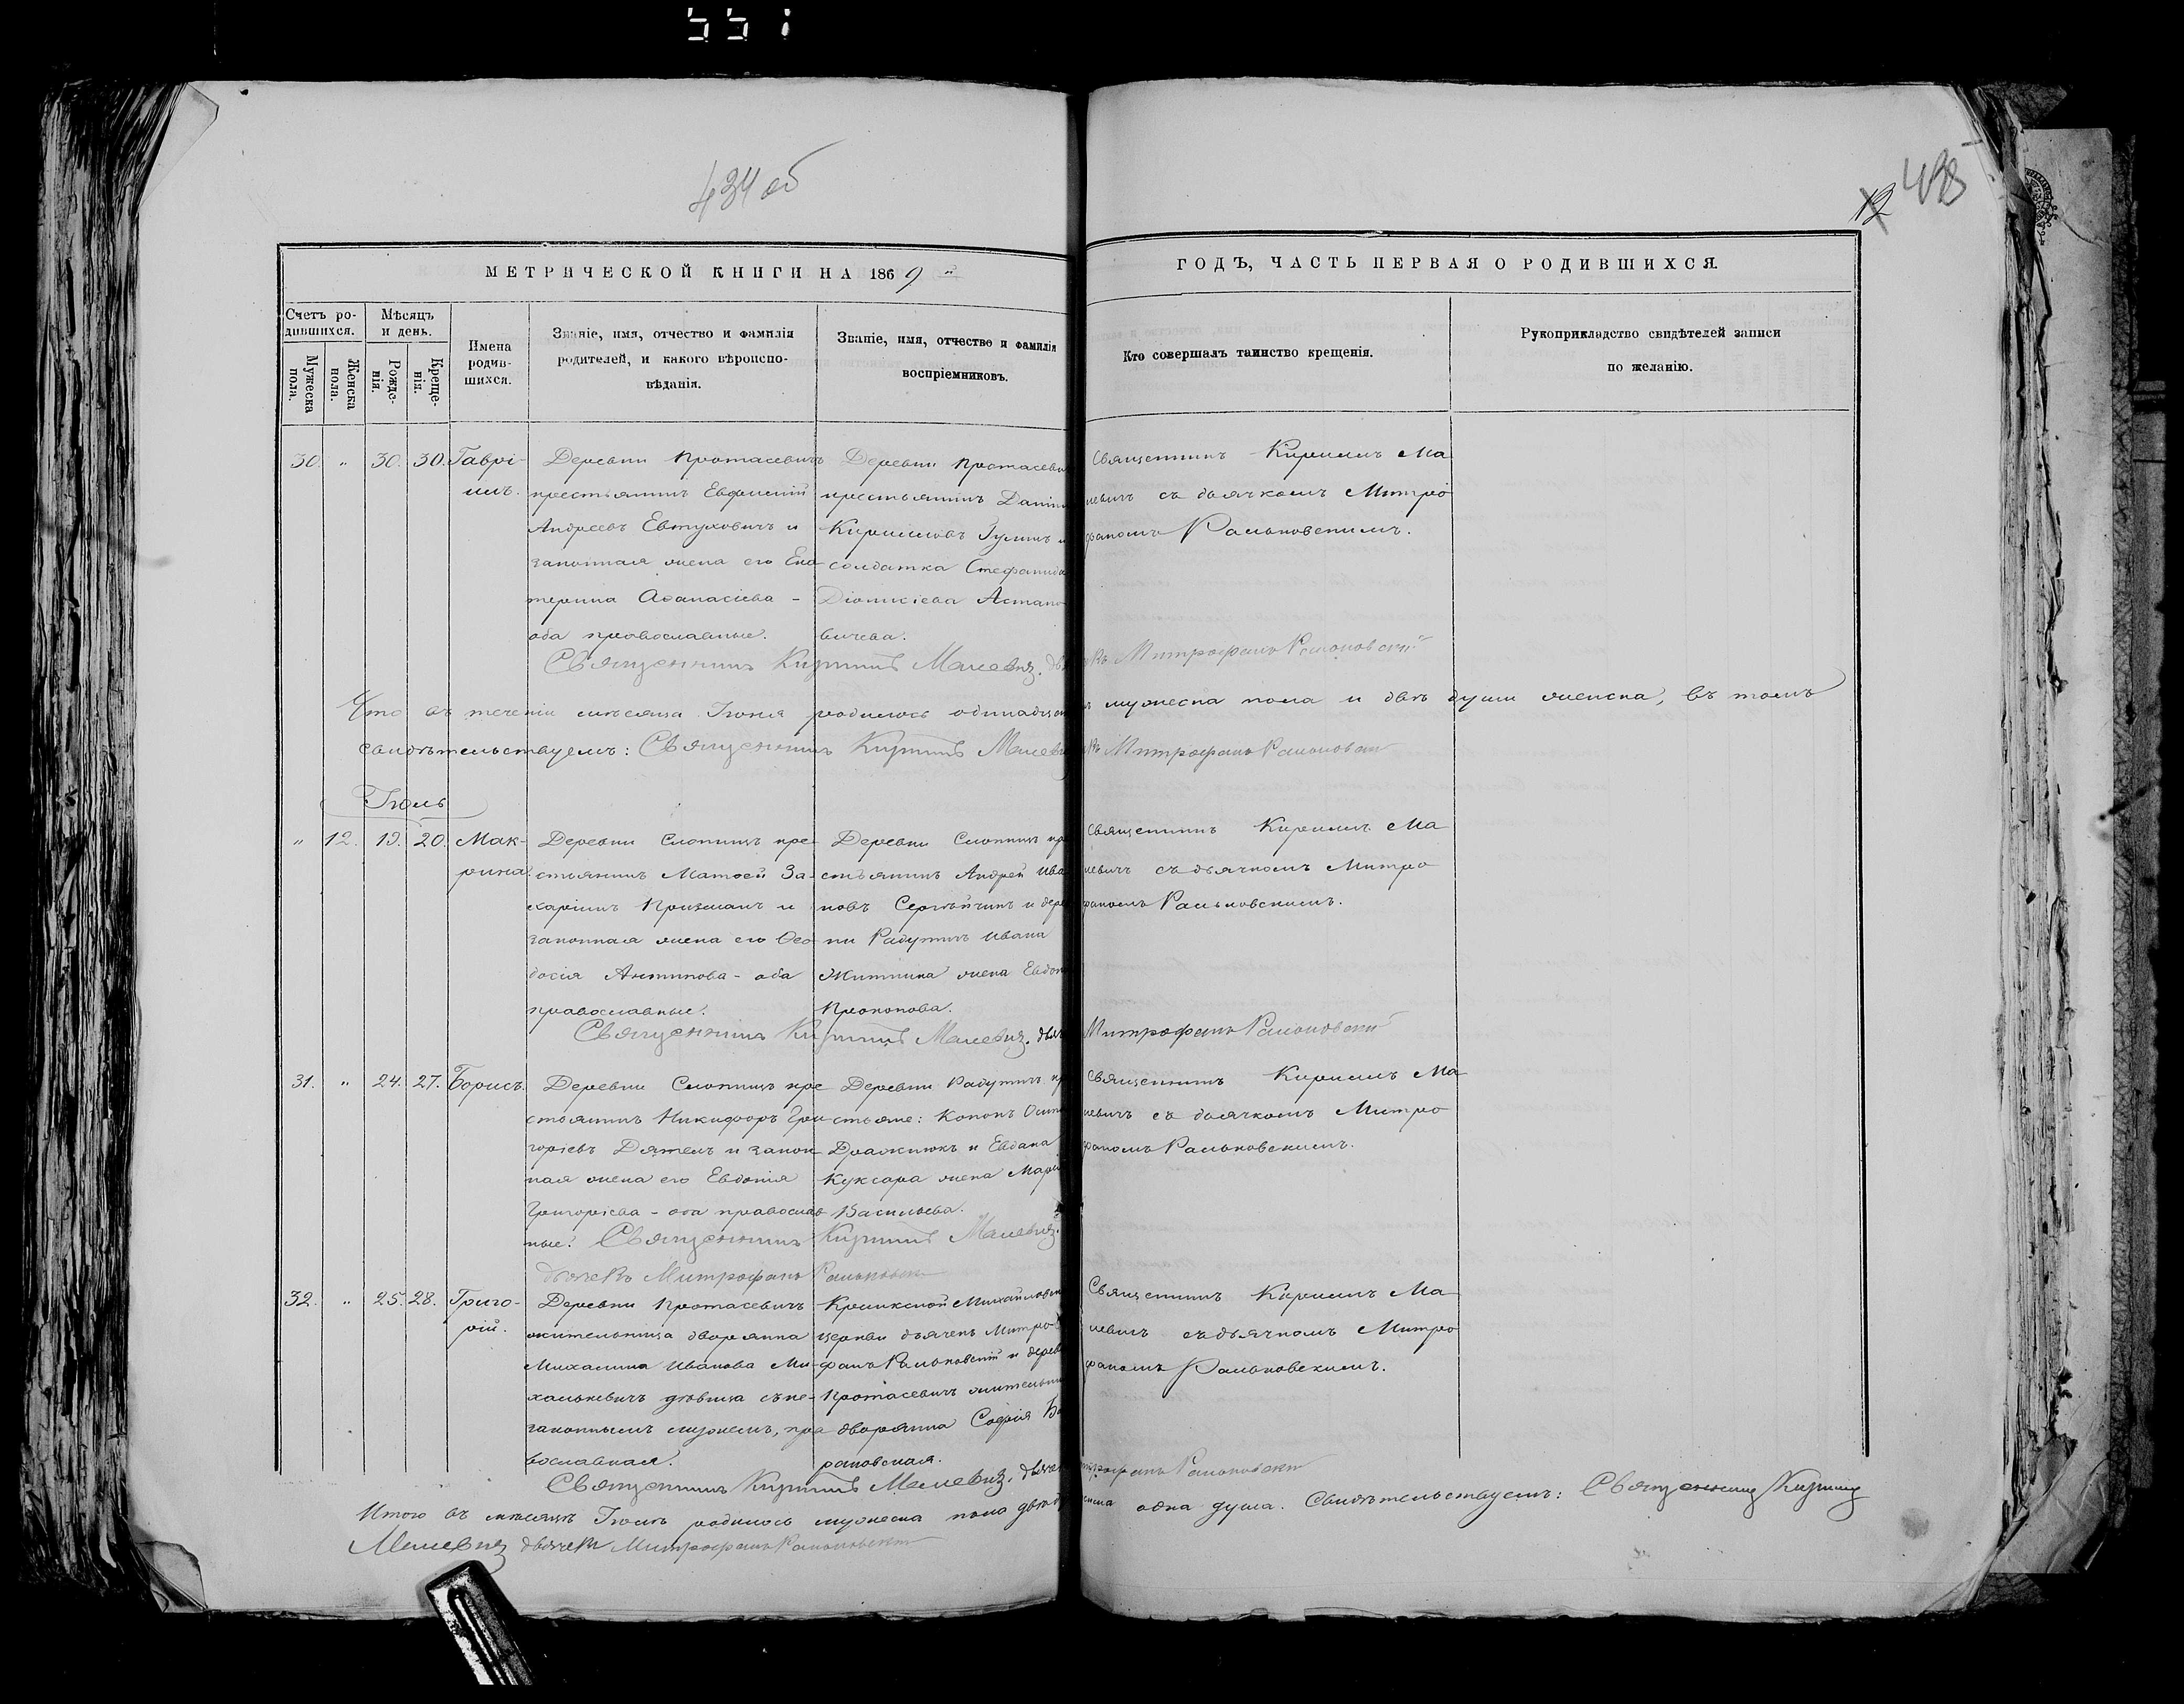 551
434 об
12 435
МЕТРИЧЕСКОЙ КНИГИ НА 1869
ГОДЪ, ЧАСТЬ ПЕРВАЯ О РОДИВШИХСЯ.
Счетъ ро-
дившихся.
Мужеска
пола.
Женска
пола.
Мѣсяцъ
и день.
Рожде-
нія.
Креще-
нія.
Имена
родив-
шихся.
Званіе, имя, отчество и фамилія
родителей, и какого вѣроиспо-
вѣданія.
Званіе, имя, отчество и фамилія
воспріемниковъ.
Кто совершалъ таинство крещенія.
Рукоприкладство свидѣтелей записи
по желанію.
30. " 30. 30. Гаврі-
илъ.
Деревни Протасевичъ
крестьянинъ Евфимій
Андреевъ Евтуховичъ и
законная жена его Ека-
терина Аѳанасіева -
оба православные.
Деревни Протасеви
крестьянинъ Данiи
Кирилловъ Гулинъ и
солдатка Стефанида
Діонисіева Астапо-
вичева.
Священникъ Кириллъ Ма
левичъ съ дьячкомъ Митро
фаномъ Ральковскимъ.
Священникъ Кириллъ Малевичъ. дья къ Митрофанъ Ральковскій
Что въ теченіи мѣсяца Іюня родилось одинадцат мужеска пола и двѣ души женска, въ томъ
свидѣтельствуемъ: Священникъ Кириллъ Малеви къ Митрофанъ Ральковскій
Іюль
" 12. 19. 20. Мак-
рина.
Деревни Слонимъ кре
стьянинъ Матѳей За-
харіинъ Призманъ и
законная жена его Ѳео-
досія Антипова - оба
православные.
Деревни Слонимъ кр
стьянинъ Андрей Ива
новъ Сергѣйчикъ и дере
ни Радутичъ Ивана
Житника жена Евдок
Прокопова.
Священникъ Кириллъ Ма
левичъ съ дьячкомъ Митро
фаномъ Ральковскимъ.
Священникъ Кириллъ Малевичъ. дьяч Митрофанъ Ральковскій
31. " 24. 27. Борисъ.
Деревни Слонимъ кре
стьянинъ Никифоръ Гри
горіевъ Дятелъ и закон
ная жена его Евдокія
Григоріева - оба православ
ные.
Деревни Радутичъ кр
стьяне: Кононъ Осип
Дражнюкъ и Евдана
Куксара жена Мари
Васильева.
Священникъ Кириллъ Ма
левичъ съ дьячкомъ Митро
фаномъ Ральковскимъ.
Священникъ Кириллъ Малевичъ.
дьячекъ Митрофанъ Ральковскій
32. " 25. 28. Григо-
рій.
Деревни Протасевичъ
жительница дворянка
Михалина Иванова Ми-
халькевичъ дѣвица съ не-
законнымъ мужемъ, пра
вославная.
Михайловск
церкви дьячекъ Митро
фанъ Ральковскій и дерев
Протасевичъ жительни
дворянка Софія Ба
рановская.
Священникъ Кириллъ Ма
левичъ съ дьячкомъ Митро
фаномъ Ральковскимъ.
Священникъ Кириллъ Малевичъ. дьячек трофанъ Ральковскій
Итого въ мѣсяцѣ Іюлѣ родилось мужеска пола двѣ д енска одна душа. Свидѣтельствуемъ: Священникъ Кириллъ
Малевичъ дьячекъ Митрофанъ Ральковскій